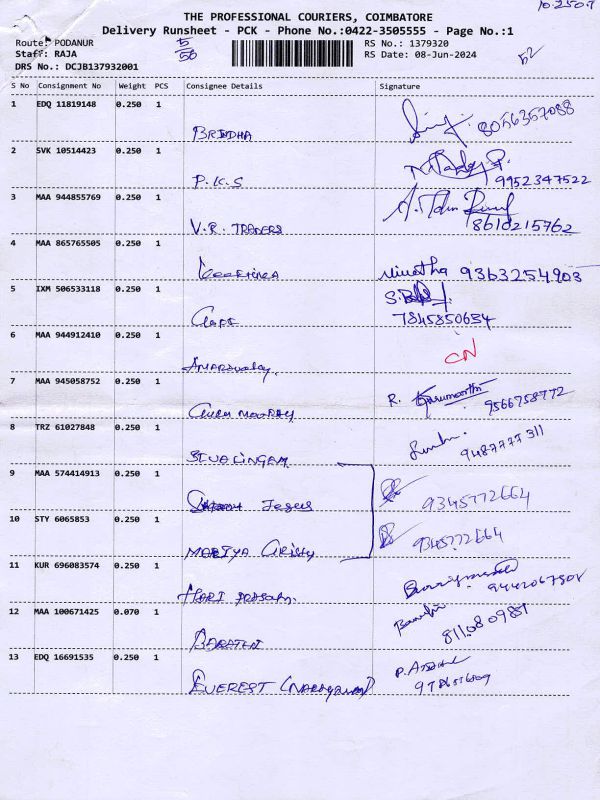 10.2507
THE PROFESSIONAL COURIERS, COIMBATORE
Delivery Runsheet - PCK - Phone No.:0422-3505555 - Page No.:1
Route: PODANUR 5/50 RS No.: 1379320
Staff: RAJA RS Date: 08-Jun-2024 52
DRS No.: DCJB137932001
S No Consignment No Weight PCS Consignee Details Signature
1 EDQ 11819148 0.250 1
BRINDHA 8056357088
2 SVK 10514423 0.250 1
P.K.S 9952347522
3 MAA 944855769 0.250 1
V.R. TRADERS 8610215762
4 MAA 865765505 0.250 1
9363254903
5 IXM 506533118 0.250 1
7845850634
6 MAA 944912410 0.250 1
CN
7 MAA 945058752 0.250 1
R. 9566758772
8 TRZ 61027848 0.250 1
SIVALINGAM 9487777311
9 MAA 574414913 0.250 1
Jesus 9345772664
10 STY 6065853 0.250 1
MARIYA 9345772664
11 KUR 696083574 0.250 1
HARI PRASATH.
12 MAA 100671425 0.070 1
BARATHI
13 EDQ 16691535 0.250 1
EVEREST